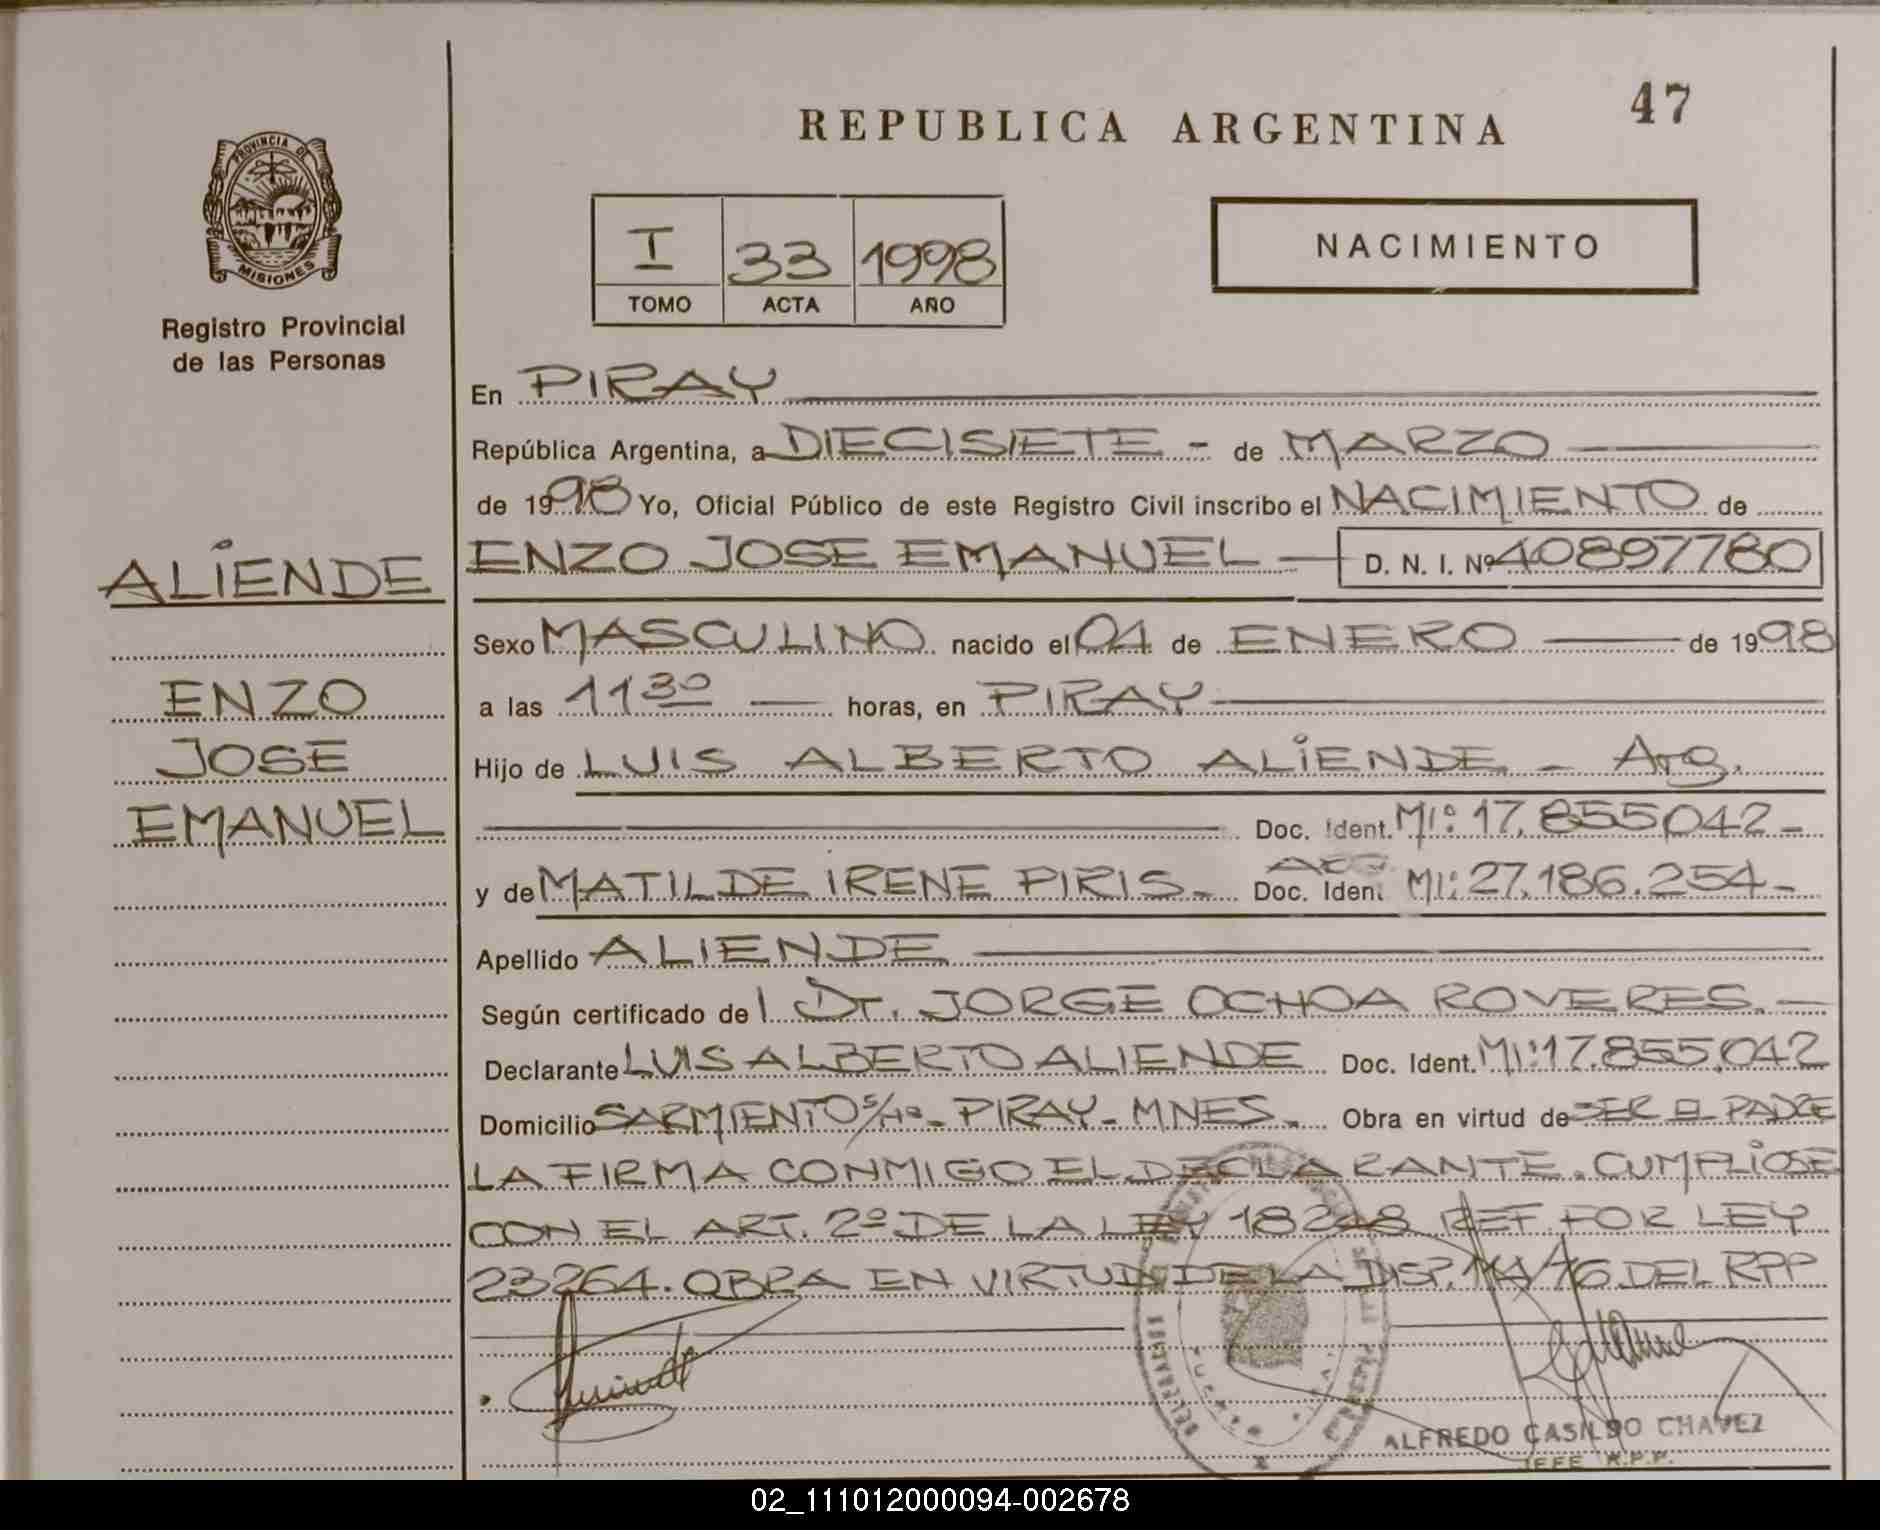 47
REPUBLICA ARGENTINA
PROVINCIA DE
MISIONES
Registro Provincial
de las Personas
I 33 1998
TOMO ACTA AÑO
NACIMIENTO
En PIRAY
República Argentina, a DIECISIETE - de MARZO
de 1998 Yo, Oficial Público de este Registro Civil inscribo el NACIMIENTO de
ALIENDE
ENZO
JOSE
EMANUEL
ENZO JOSE EMANUEL — D. N. I. Nº 40897780
Sexo MASCULINO nacido el 04 de ENERO — de 1998
a las 11 30 — horas, en PIRAY
Hijo de LUIS ALBERTO ALIENDE - Arg.
Doc. Ident. MI: 17.855042 -
ARG
y de MATILDE IRENE PIRIS - Doc. Iden. MI: 27.186.254 -
Apellido ALIENDE
Según certificado de l Dr. JORGE OCHOA ROVERES. -
Declarante LUIS ALBERTO ALIENDE Doc. Ident. MI: 17.855.042
Domicilio SARMIENTO S/Nº - PIRAY - MNES - Obra en virtud de SER EL PADRE
LA FIRMA CONMIGO EL DECLARANTE. CUMPLIOSE
CON EL ART. 2º DE LA LEY 18248 REF. POR LEY
23264. OBRA EN VIRTUD DE LA DISP. 114/76 DEL RPP
ALFREDO CASILDO CHAVEZ
JEFE R.P.P.
02_111012000094-002678